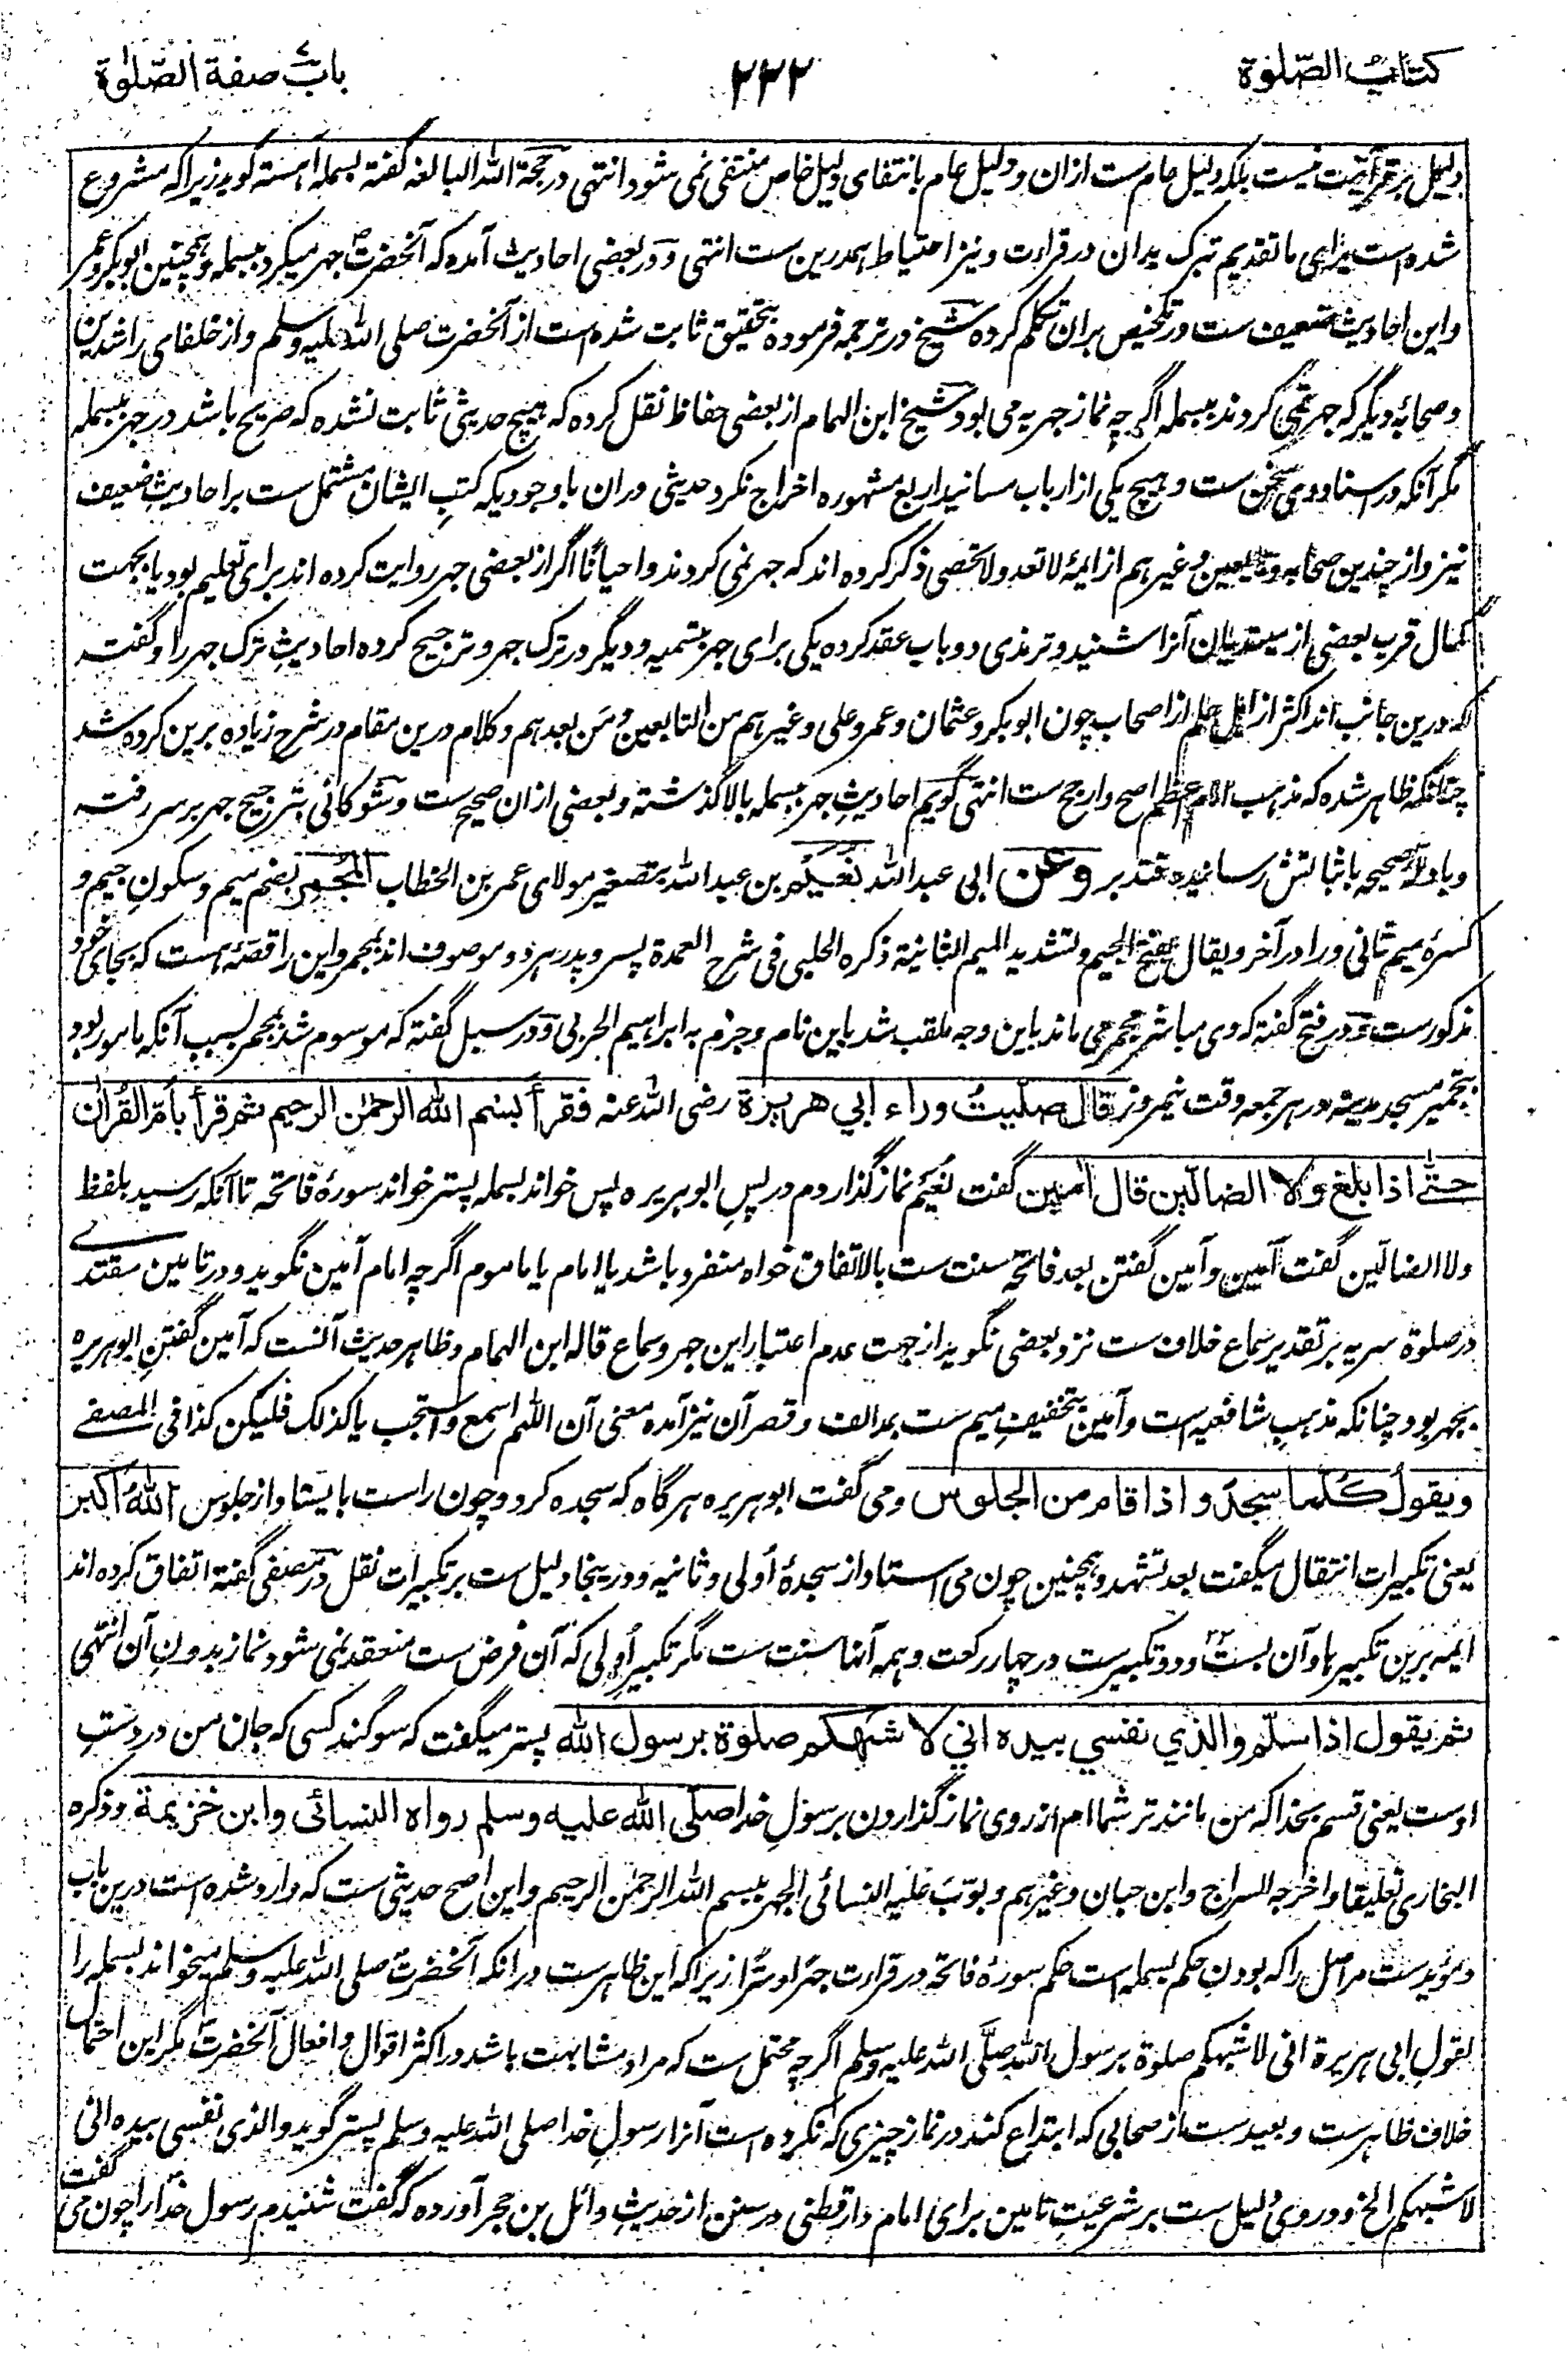 كتاب الصّلوة
۲۳۲
باب صفة الصّلوة
دلیل بر قرآنیت نیست بلکه دلیل عام ست ازان و دلیل عام بانتفای دلیل خاص منتفی نمی شود انتهی در حجة الله البالغه گفته بسمله آهسته گوید زیراکه مشروع
شده است برای ما تقدیم تبرک بدان در قراءت و نیز احتیاط همدرین ست انتهی و در بعضی احادیث آمده که آنحضرت جهر میکرد ببسمله و همچنین ابوبکر و عمر
و این احادیث ضعیف ست در تلخیص بران تکلم کرده شیخ در ترجمه فرموده بتحقیق ثابت شده است از آنحضرت صلی الله علیه وسلم و از خلفای راشدین
و صحابهٔ دیگر که جهر نمی کردند ببسمله اگرچه نماز جهریه می بود شیخ ابن الهمام از بعضی حفاظ نقل کرده که هیچ حدیثی ثابت نشده که صریح باشد در جهر ببسمله
مگر آنکه در اسناد وی سخن ست و هیچ یکی از ارباب مسانید اربع مشهوره اخراج نکرد حدیثی دران باوجودیکه کتب ایشان مشتمل ست بر احادیث ضعیف
نیز و از چندین صحابه و تابعین و غیرهم از ایمهٔ لا تعد ولا تحصی ذکر کرده اند که جهر نمی کردند و احیانًا اگر از بعضی جهر روایت کرده اند برای تعلیم بود یا بجهت
کمال قرب بعضی از مقتدیان آنرا شنید و ترمذی دو باب عقد کرده یکی برای جهر بتسمیه و دیگر در ترک جهر و ترجیح کرده احادیث ترک جهر را و گفته
که درین جانب اند اکثر از اهل علم از اصحاب چون ابوبکر و عثمان و عمر و علی و غیرهم من التابعین و من بعدهم و کلام درین مقام در شرح زیاده برین کرده شد
چنانکه ظاهر شده که مذهب امام اعظم اصح و ارجح ست انتهی گویم احادیث جهر ببسمله بالا گذشته و بعضی ازان صحیح ست و شوکانی بترجیح جهر برسر رفته
و بادلهٔ صحیحه باثباتش رسانیده فتدبر وعن ابی عبدالله نعیم بن عبدالله بتصغیر مولای عمر بن الخطاب المجمر بضم میم و سکون جیم و
کسرهٔ میم ثانی و را در آخر و یقال بفتح الجیم و تشدید المیم الثانیة ذکره الحلبی فی شرح العمدة پسر و پدر هر دو موصوف اند بمجمر و این را قصه است که بجای خود
مذکورست و در فتح گفته که وی مباشر مجمر می ماند باین وجه ملقب شد باین نام و جزم به ابراهیم الحربی و در سبل گفته که موسوم شد بمجمر بسبب آنکه مامور بود
بتجمیر مسجد مدینه در هر جمعه وقت نیمروز قال صليت وراء ابي هريرة رضی الله عنه فقرأ بسم الله الرحمن الرحيم ثم قرأ بام القرأن
حتّى اذا بلغ ولا الضالين قال أمين گفت نعیم نماز گذاردم در پس ابوهریره پس خواند بسمله پستر خواند سورهٔ فاتحه تا آنکه رسید بلفظ
ولا الضالین گفت آمین و آمین گفتن بعد فاتحه سنت ست بالاتفاق خواه منفرد باشد یا امام یا ماموم اگرچه امام آمین نگوید و در تامین مقتدے
در صلوة سریه بر تقدیر سماع خلاف ست نزد بعضی نگوید از جهت عدم اعتبار این جهر و سماع قاله ابن الهمام و ظاهر حدیث آنست که آمین گفتن ابوهریره
بجهر بود چنانکه مذهب شافعیه است و آمین بتخفیف میم ست بمد الف و قصر آن نیز آمده معنی آن اللهم اسمع و استجب یا کذلک فلیکن کذا فی المصفے
ويقول كلما سجد و اذا قام من الجلوس و می گفت ابوهریره هرگاه که سجده کرد و چون راست بایستاد از جلوس الله اكبر
یعنی تکبیرات انتقال میگفت بعد تشهد و همچنین چون می استاد از سجدهٔ اولی و ثانیه و درینجا دلیل ست بر تکبیرات نقل در مصفی گفته اتفاق کرده اند
ایمه برین تکبیرها و آن بست و دو تکبیرست در چهار رکعت و همه آنها سنت ست مگر تکبیر اولی که آن فرض ست منعقد نمی شود نماز بدون آن انتهی
ثم يقول اذا سلم والذي نفسي بيده اني لا شبهكم صلوة برسول الله پستر میگفت که سوگند کسی که جان من در دست
اوست یعنی قسم بخدا که من مانندتر شماام از روی نماز گذاردن برسول خدا صلى الله عليه وسلم رواه النسائى وابن خزيمة و ذکره
البخاری تعلیقا و اخرجه السراج و ابن حبان و غیرهم و بوّب علیه النسائی الجهر ببسم الله الرحمن الرحیم و این اصح حدیثی ست که وارد شده است درین باب
و مؤیدست مر اصل را که بودن حکم بسمله است حکم سورهٔ فاتحه در قراءت جهرًا و سرًّا زیراکه این ظاهرست در آنکه آنحضرت صلی الله علیه وسلم میخواند بسمله را
لقول ابی هریرة انی لاشبهکم صلوة برسول الله صلَّی الله علیه وسلم اگرچه محتمل ست که مراد مشابهت باشد در اکثر اقوال و افعال آنحضرت مگر این احتمال
خلاف ظاهرست و بعیدست از صحابی که ابتداع کند در نماز چیزی که نکرده است آنرا رسول خدا صلی الله علیه وسلم پستر گوید والذی نفسی بیده انی
لاشبهکم الخ و در وی دلیل ست بر شرعیت تامین برای امام دارقطنی در سنن از حدیث وائل بن حجر آورده که گفت شنیدم رسول خدا را چون می گفت